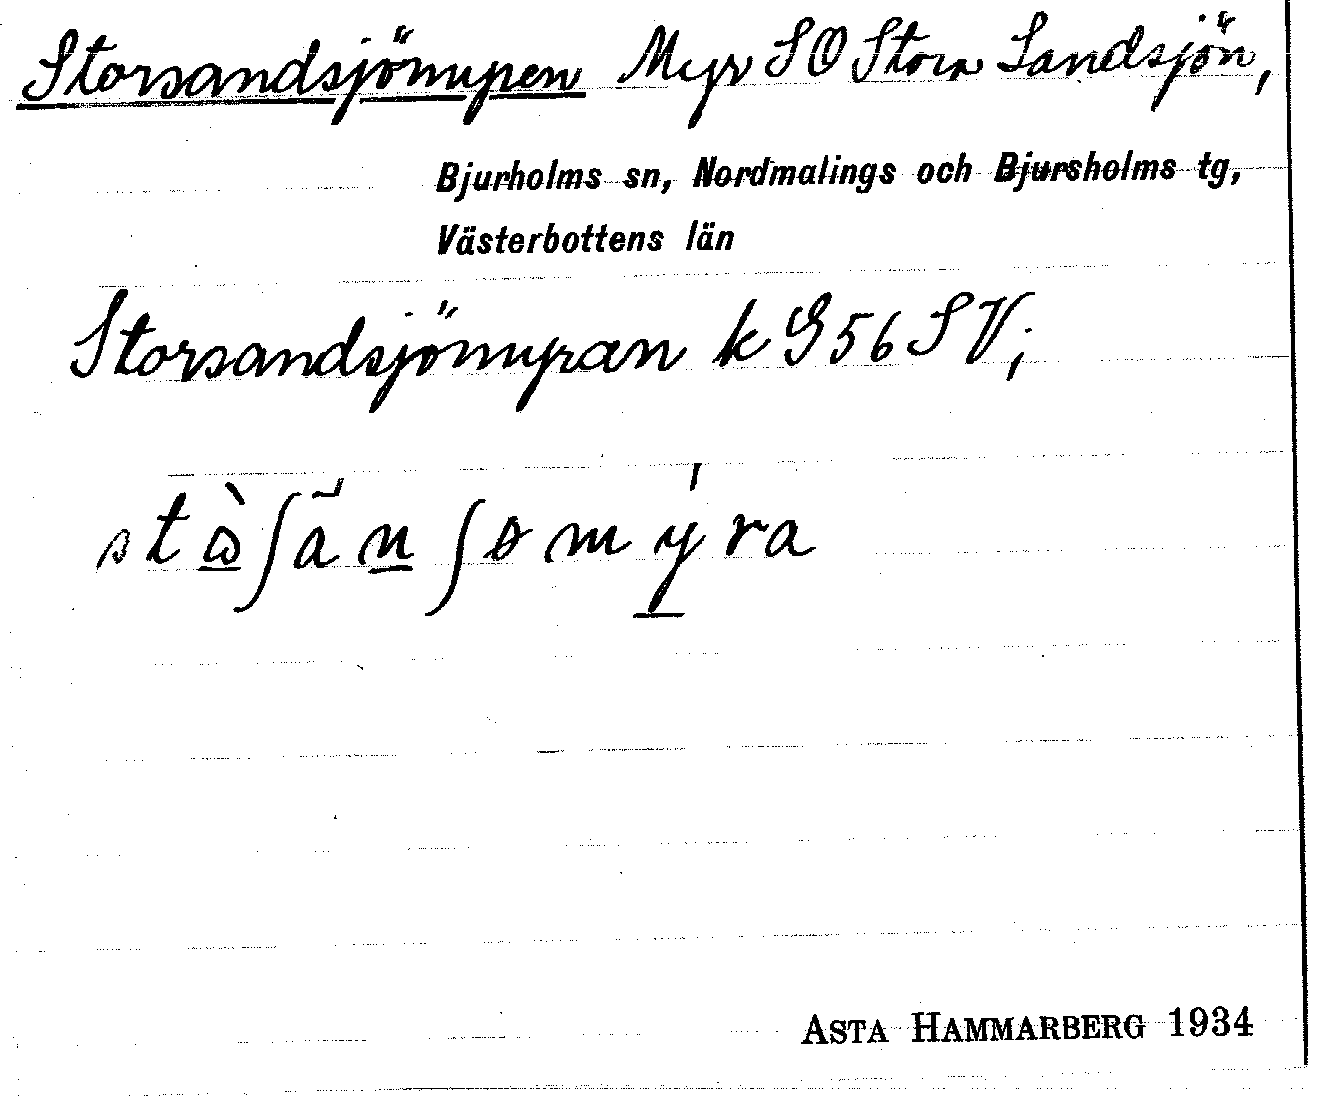 Storsandsjömyren Myr SO Stora Sandsjön,
Bjurholms sn, Nordmalings och Bjursholms tg,
Västerbottens län
Storsandsjömyran k G 56 SV;
ASTA HAMMARBERG 1934